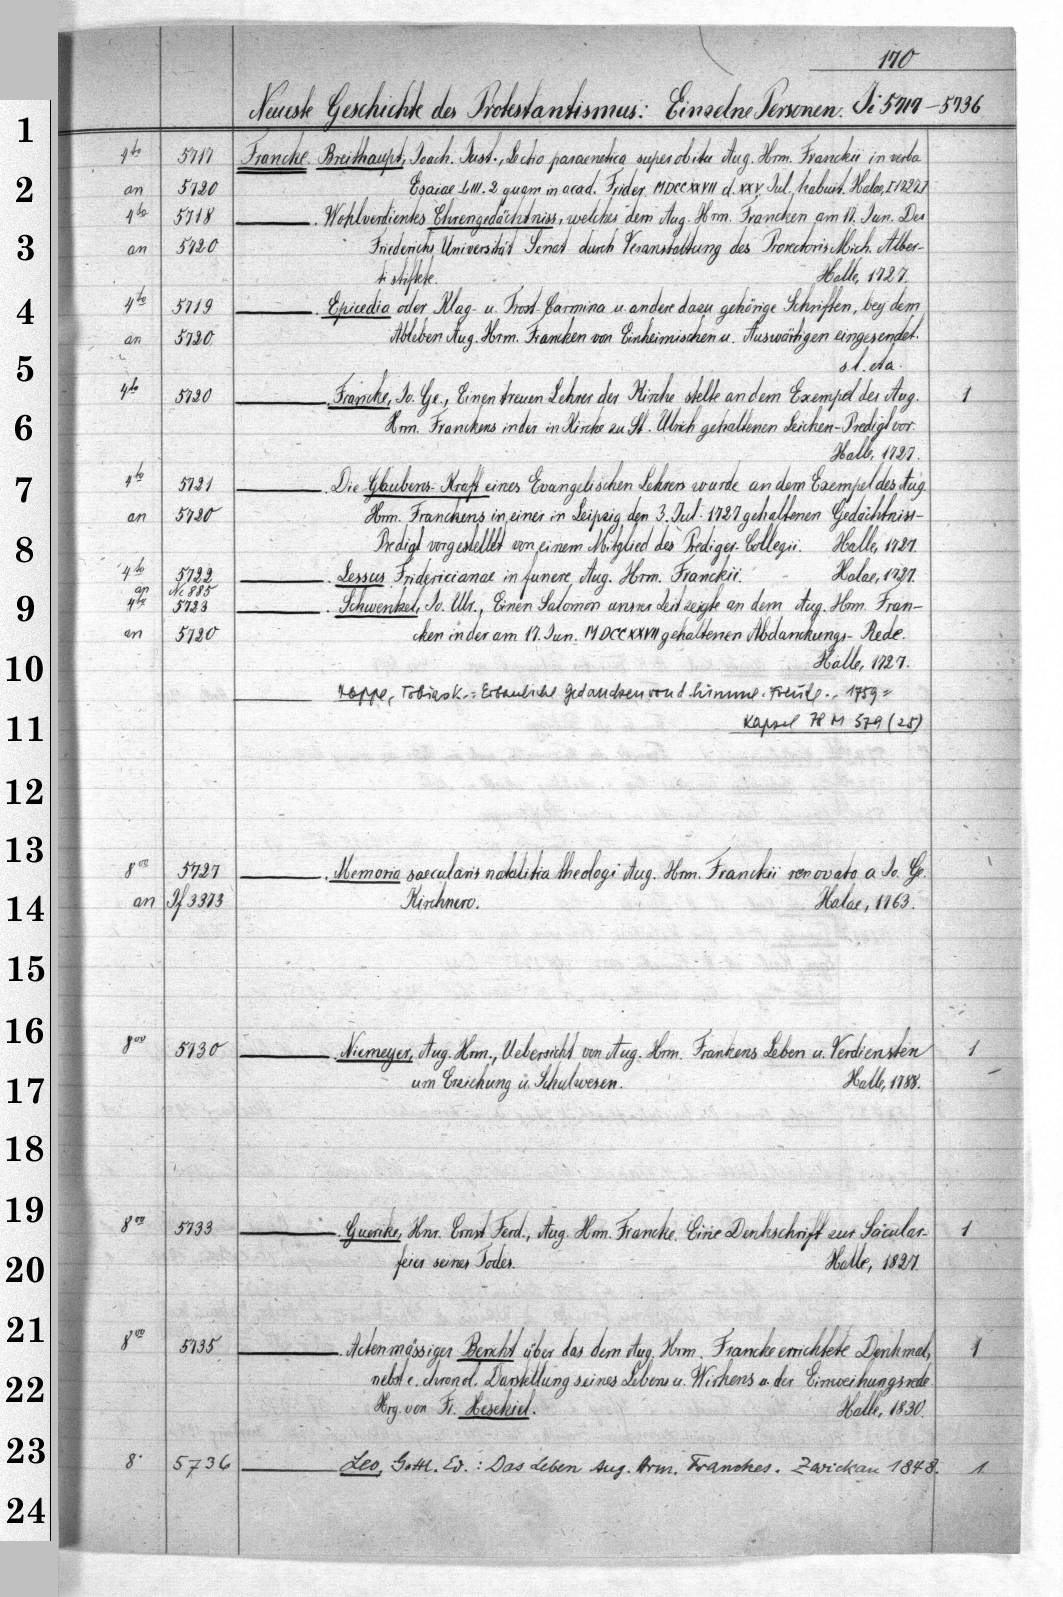 170
Neueste Geschichte des Protestantismus: Einzelne Personen. Ji 5717-5736
4to 5717 Francke. Breithaupt, Joach. Just., Lectio paraenetica super obitu Aug. Hrm. Franckii in verba
an 5720 Esaiae LIII. 2 quam in acad. Frider. MDCCXXVII d. XXV. Jul. habuit. Halae, [1727]
4to 5718 ———. Wohlverdientes Ehrengedächtniss, welches dem Aug. Hrm. Francken am 17. Jun. Der
an 5720 Friederichs Universität Senat durch Veranstaltung des Prorectoris Mich. Alber-
ti stiftete. Halle, 1727.
4to 5719 ———. Epicedia oder Klag- u. Trost-Carmina u. andere dazu gehörige Schriften, bey dem
an 5720 Ableben Aug. Hrm. Francken von Einheimischen u. Auswärtigen eingesendet.
s. l. et a.
4to 5720 ———. Francke, Jo. Ge., Einen treuen Lehrer der Kirche stelte an dem Exempel des Aug. 1
Hrm. Franckens in der in Kirche zu St. Ulrich gehaltenen Leichen-Predigt vor.
Halle, 1727.
4to 5721 ———. Die Glaubens-Kraft eines Evangelischen Lehrers wurde an dem Exempel des Aug.
an 5720 Hrm. Franckens in einer in Leipzig den 3. Jul. 1727 gehaltenen Gedächtniss-
Predigt vorgestellet von einem Mitglied des Prediger-Collegii. Halle, 1727.
4to 5722 ———. Lessus Fridericianae in funere Aug. Hrm. Franckii. Halae, 1727.
an Nc 885
4to 5723 ———. Schwenkel, Jo. Ulr., Einen Salomon unsrer Zeit zeigte an dem Aug. Hrm. Fran-
an 5720 cken in der am 17. Jun. MDCCXXVII gehaltenen Abdanckungs-Rede.
Halle, 1727.
——— Koppe, Tobias K.: Erbauliche Gedancken von d. himml. Freude.. 1759 =
Kapsel 78 M 579 (25)
8vo 5727 ———. Memoria saecularis natalitia theologi Aug. Hrm. Franckii renovato a Jo. Ge.
an If 3373 Kirchnero. Halae, 1763.
8vo 5730 ———. Niemeyer, Aug. Hrm., Uebersicht von Aug. Hrm. Frankens Leben u. Verdiensten 1
um Erziehung u. Schulwesen. Halle, 1788.
8vo 5733 ———. Guerike, Hnr. Ernst Ferd., Aug. Hrm. Francke. Eine Denkschrift zur Säcular- 1
feier seines Todes. Halle, 1827.
8vo 5735 ———. Actenmässiger Bericht über das dem Aug. Hrm. Francke errichtete Denkmal, 1
nebst e. chronol. Darstellung seines Lebens u. Wirkens u. der Einweihungsrede
Hrg. von Fr. Hesekiel. Halle, 1830.
8. 5736 ——— Leo, Gottl. Ed.: Das Leben Aug. Hrm. Franckes. Zwickau 1848. 1
1
2
3
4
5
6
7
8
9
10
11
12
13
14
15
16
17
18
19
20
21
22
23
24